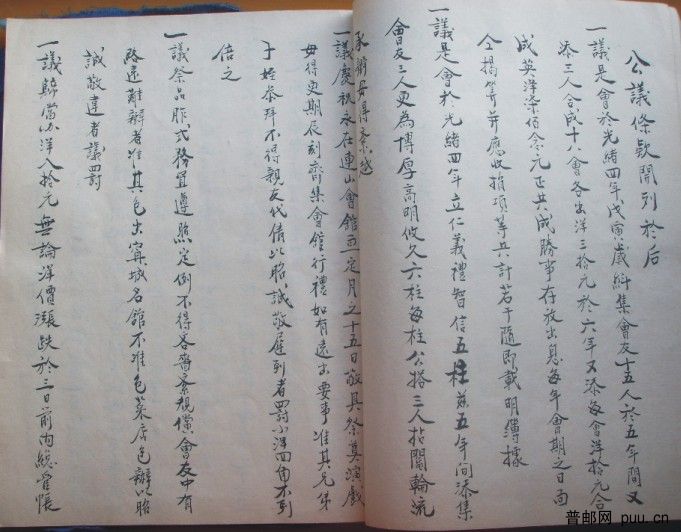 公議條欵開列於后
一議是會於光緒四年戊寅歲糾集會友十五人於五年間又
添三人合成十八會各出洋三拾元於六年又添每會洋拾元合
成英洋柒佰念元正共成勝事存放出息每年會期之日面
仝揭算并應收捐項等共計若干隨即載明簿據
一議是會於光緒四年立仁義禮智信五柱茲五年間添集
會友三人更為博厚高明攸久六柱每柱公搭三人拈鬮輪流
承辦毋得紊越
一議慶秋永在連山會館一定月之十五日敬具祭奠演戲
毋得更期辰刻齊集會館行禮如有遠出要事准其兄弟
子姪恭拜不得親友代倩以昭誠敬遲到者罰小洋四角不到
倍之
一議祭品胙式務宜遵照定例不得吝嗇紊規儻會友中有
路遠難辦者准其包出甯城名館不准包菜店包辦以昭
誠敬違者議罰
一議歸當小洋入拾元無論洋價漲跌於三日前內總管帳
普邮网 puu.cn